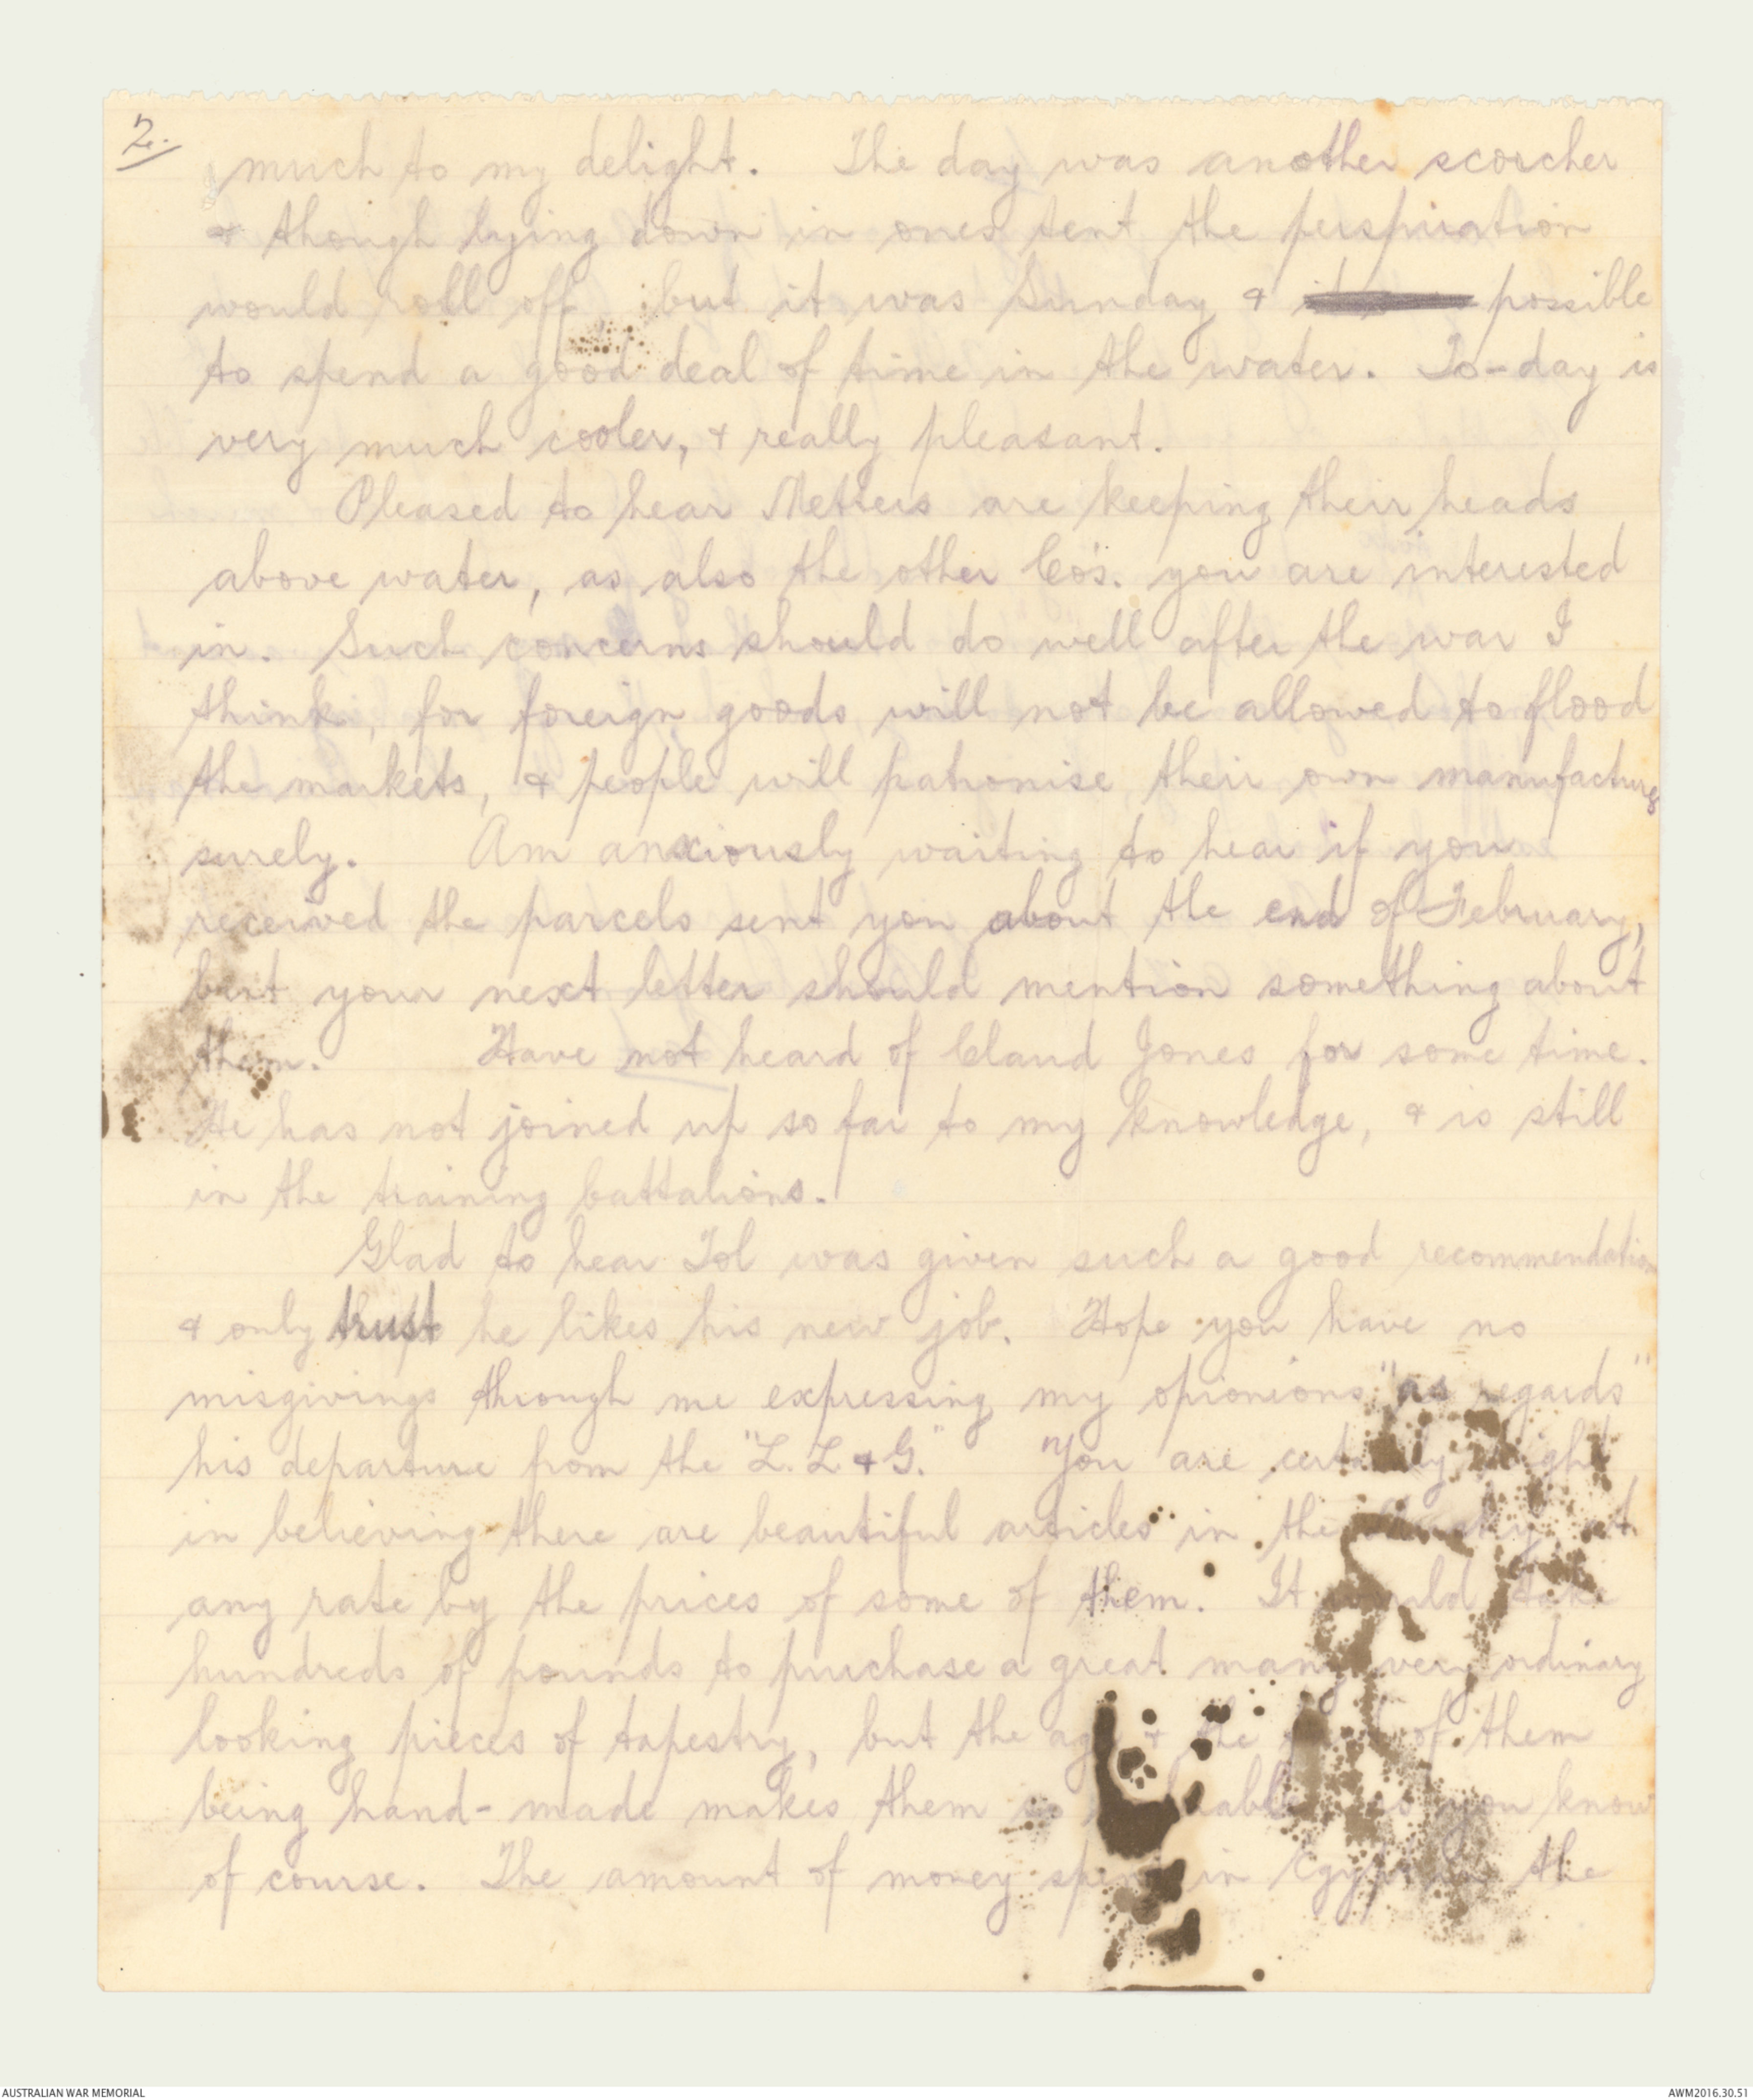 2.
much to my delight. The day was another scorcher
& though lying down in ones tent the perspiration
would roll off, but it was Sunday & possible
to spend a good deal of time in the water. To-day is
very much cooler, & really pleasant.
Pleased to hear Metters are keeping their heads
above water, as also the other Co's. you are interested
in. Such concerns should do well after the war I
think, for foreign goods will not be allowed to flood
the markets, & people will patronise their own manufactures
surely. Am anxiously waiting to hear if you
received the parcels sent you about the end of February,
but your next letter should mention something about
them. Have not heard of Claud Jones for some time.
He has not joined up so far to my knowledge, & is still
in the training battalions.
Glad to hear Tol was given such a good recommendation
& only trust he likes his new job. Hope you have no
misgivings through me expressing my opionions "as regards"
his departure from the "L. L & G." You are certainly right
in believing there are beautiful articles in the at
any rate by the prices of some of them. It would take
hundreds of pounds to purchase a great many very ordinary
looking pieces of tapestry, but the age & the of them
being hand-made makes them so valuable as you know
of course. The amount of money spent in Egypt the
AUSTRALIAN WAR MEMORIAL
AWM2016.30.51